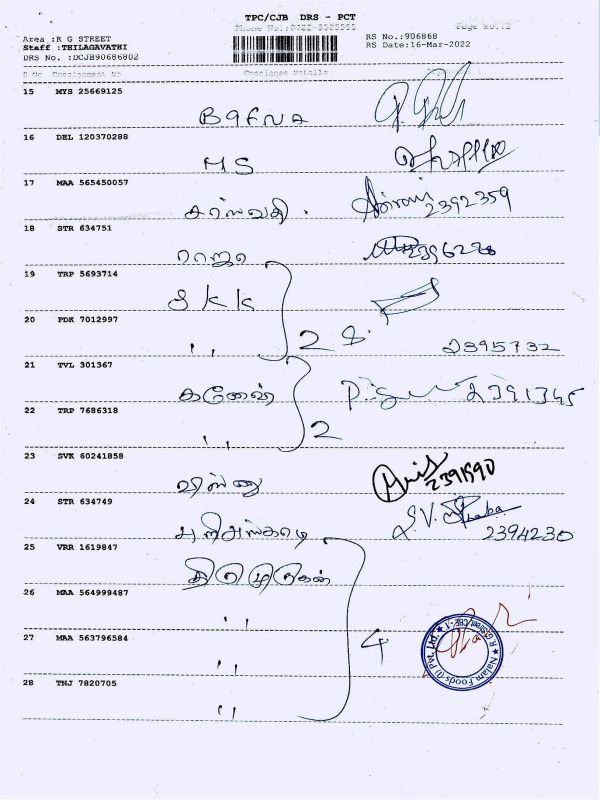 TPC/CJB DRS - PCT
Area :R G STREET
Staff :THILAGAVATHI
DRS No. :DCJB90686802
RS No.:906868
RS Date:16-Mar-2022
S No Consignment No Consignee Details
15 MYS 25669125
BAFNA
16 DEL 120370288
MS
17 MAA 565450057
சரஸ்வதி .
2392359
18 STR 634751
ராஜா
2396228
19 TRP 5693714
SKK
20 PDK 7012997
,, 2 2395732
21 TVL 301367
கணேஷ் 2391345
22 TRP 7686318
,, 2
23 SVK 60241858
விஸ்ணு
2391590
24 STR 634749
S.V.
2394230
25 VRR 1619847
26 MAA 564999487
,,
27 MAA 563796584
,, 4
Nalam Foods (I) Pvt. Ltd.
R G Street, CBE-1
28 TNJ 7820705
,,